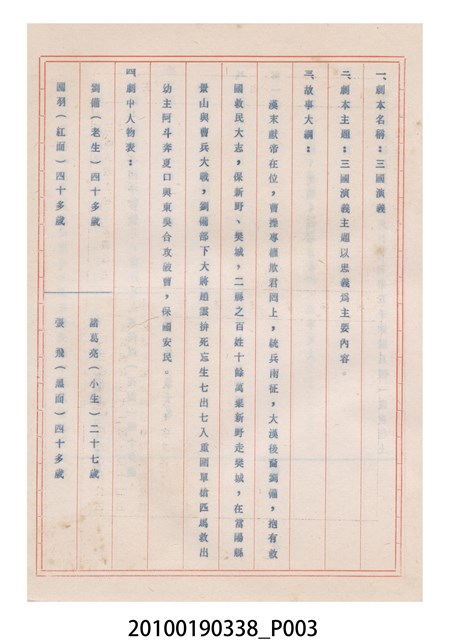 一、劇本名稱：三國演義
二、劇本主題：三國演義主題以忠義為主要內容。
三、故事大綱：
漢末獻帝在位，曹操專權欺君罔上，統兵南征，大漢後裔劉備，抱有救
國救民大志，保新野、樊城，二縣之百姓十餘萬棄新野走樊城，在當陽縣
景山與曹兵大戰，劉備部下大將趙雲拚死忘生七出七入重圍單槍匹馬救出
幼主阿斗奔夏口與東吳合攻破曹，保國安民。
四、劇中人物表：
劉備（老生）四十多歲　諸葛亮（小生）二十七歲
關羽（紅面）四十多歲　張　飛（黑面）四十多歲
20100190338_P003